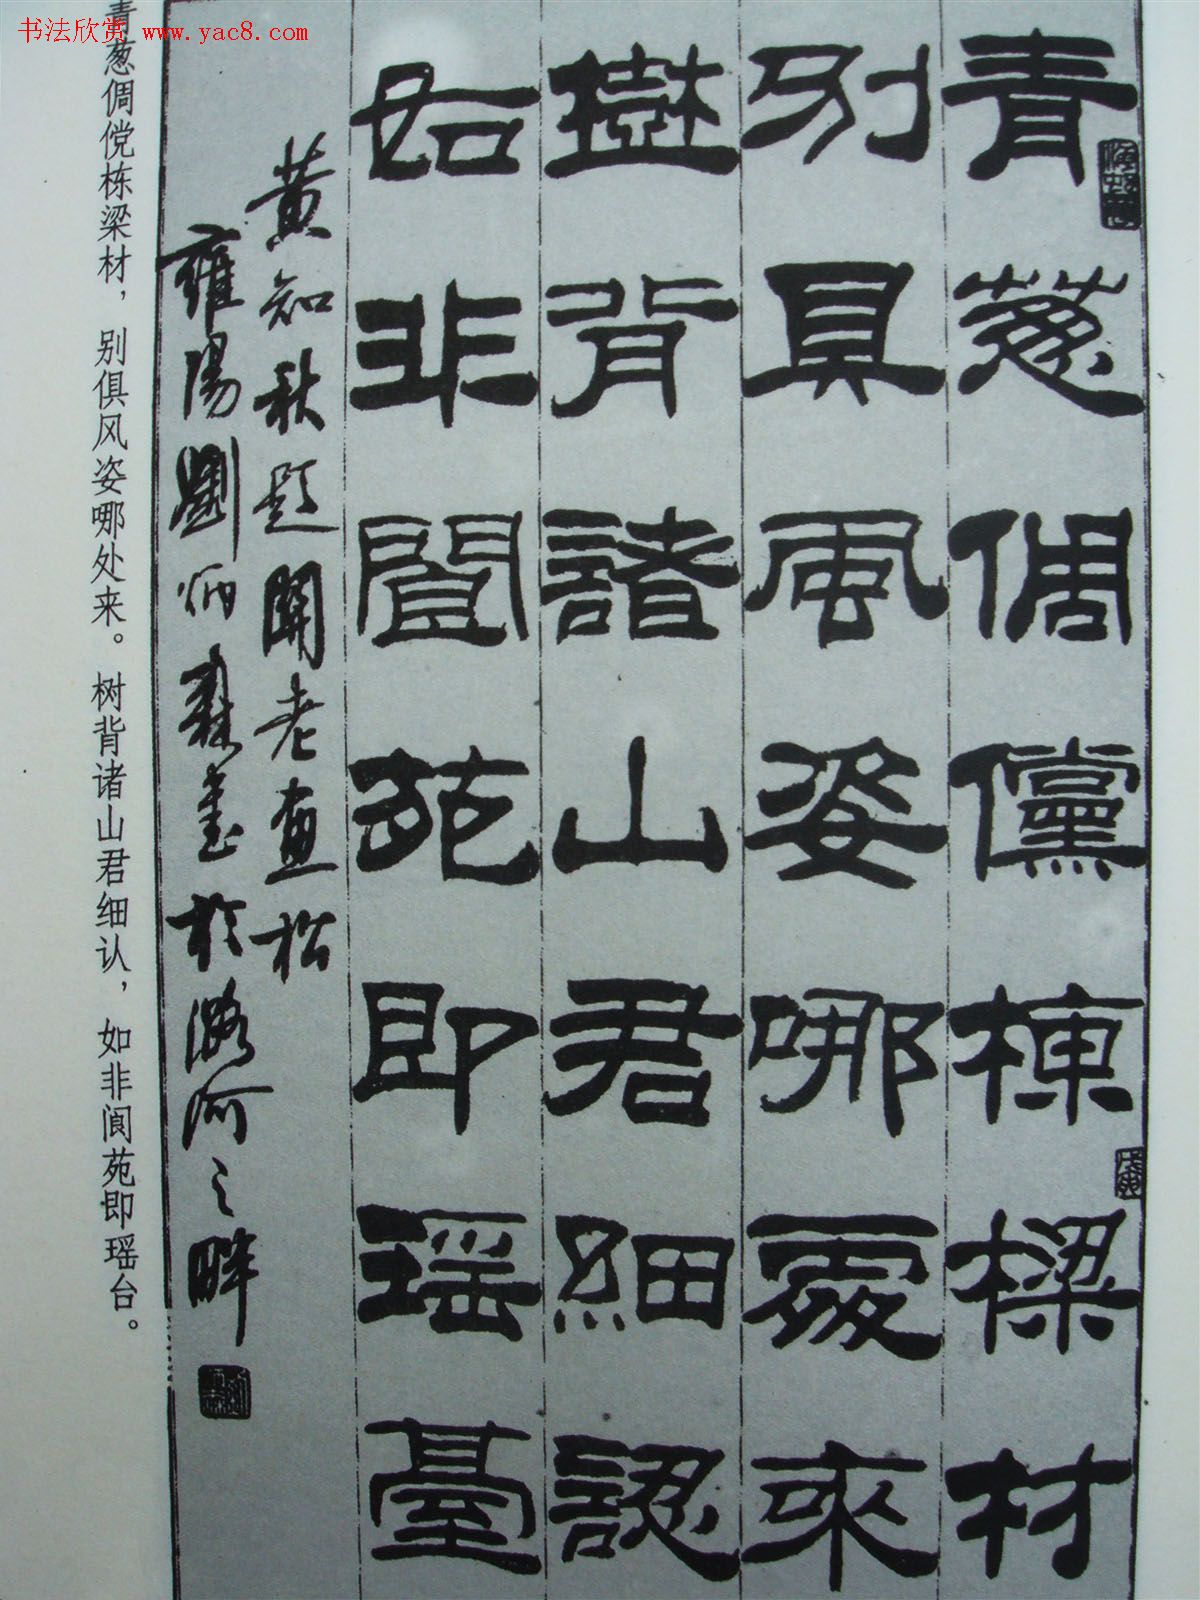 书法欣赏 www.yac8.com
青葱倜儻棟樑材
別具風姿哪處來
樹背諸山君細認
如非閬苑即瑶臺
黄知秋題關老畫松
雍陽劉炳森書於潞河之畔
青葱倜傥栋梁材，别俱风姿哪处来。树背诸山君细认，如非阆苑即瑶台。